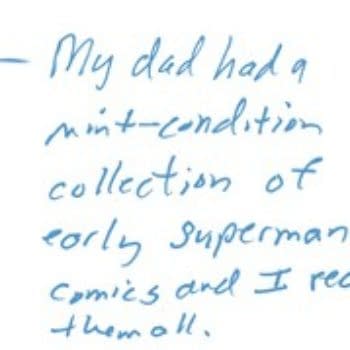 - My dad had a
mint-condition
collection of
early superman
comics and I rea
them all.